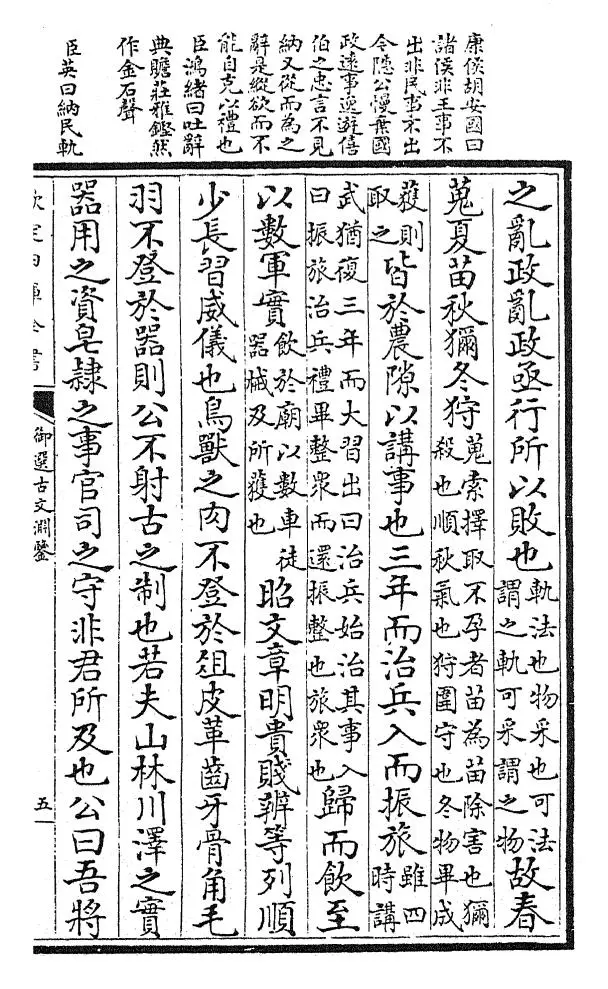 康侯胡安國曰
諸侯非王事不
出非民事不出
令隱公慢棄國
政遠事逸遊僖
伯之忠言不見
納又從而為之
辭是縱欲而不
能自克以禮也
臣鴻緒曰吐辭
典贍莊雅鏗然
作金石聲
臣英曰納民軌
之亂政亂政亟行所以敗也軌法也物采也可法謂之軌可采謂之物故春
蒐夏苗秋獮冬狩蒐索擇取不孕者苗為苗除害也獮殺也順秋氣也狩圍守也冬物畢成
獲則取之皆於農隙以講事也三年而治兵入而振旅雖四時講
武猶復三年而大習出曰治兵始治其事入曰振旅治兵禮畢整衆而還振整也旅衆也歸而飲至
以數軍實飲於廟以數車徒器械及所獲也昭文章明貴賤辨等列順
少長習威儀也鳥獸之肉不登於俎皮革齒牙骨角毛
羽不登於器則公不射古之制也若夫山林川澤之實
器用之資皂隸之事官司之守非君所及也公曰吾將
欽定四庫全書
御選古文淵鑒
五